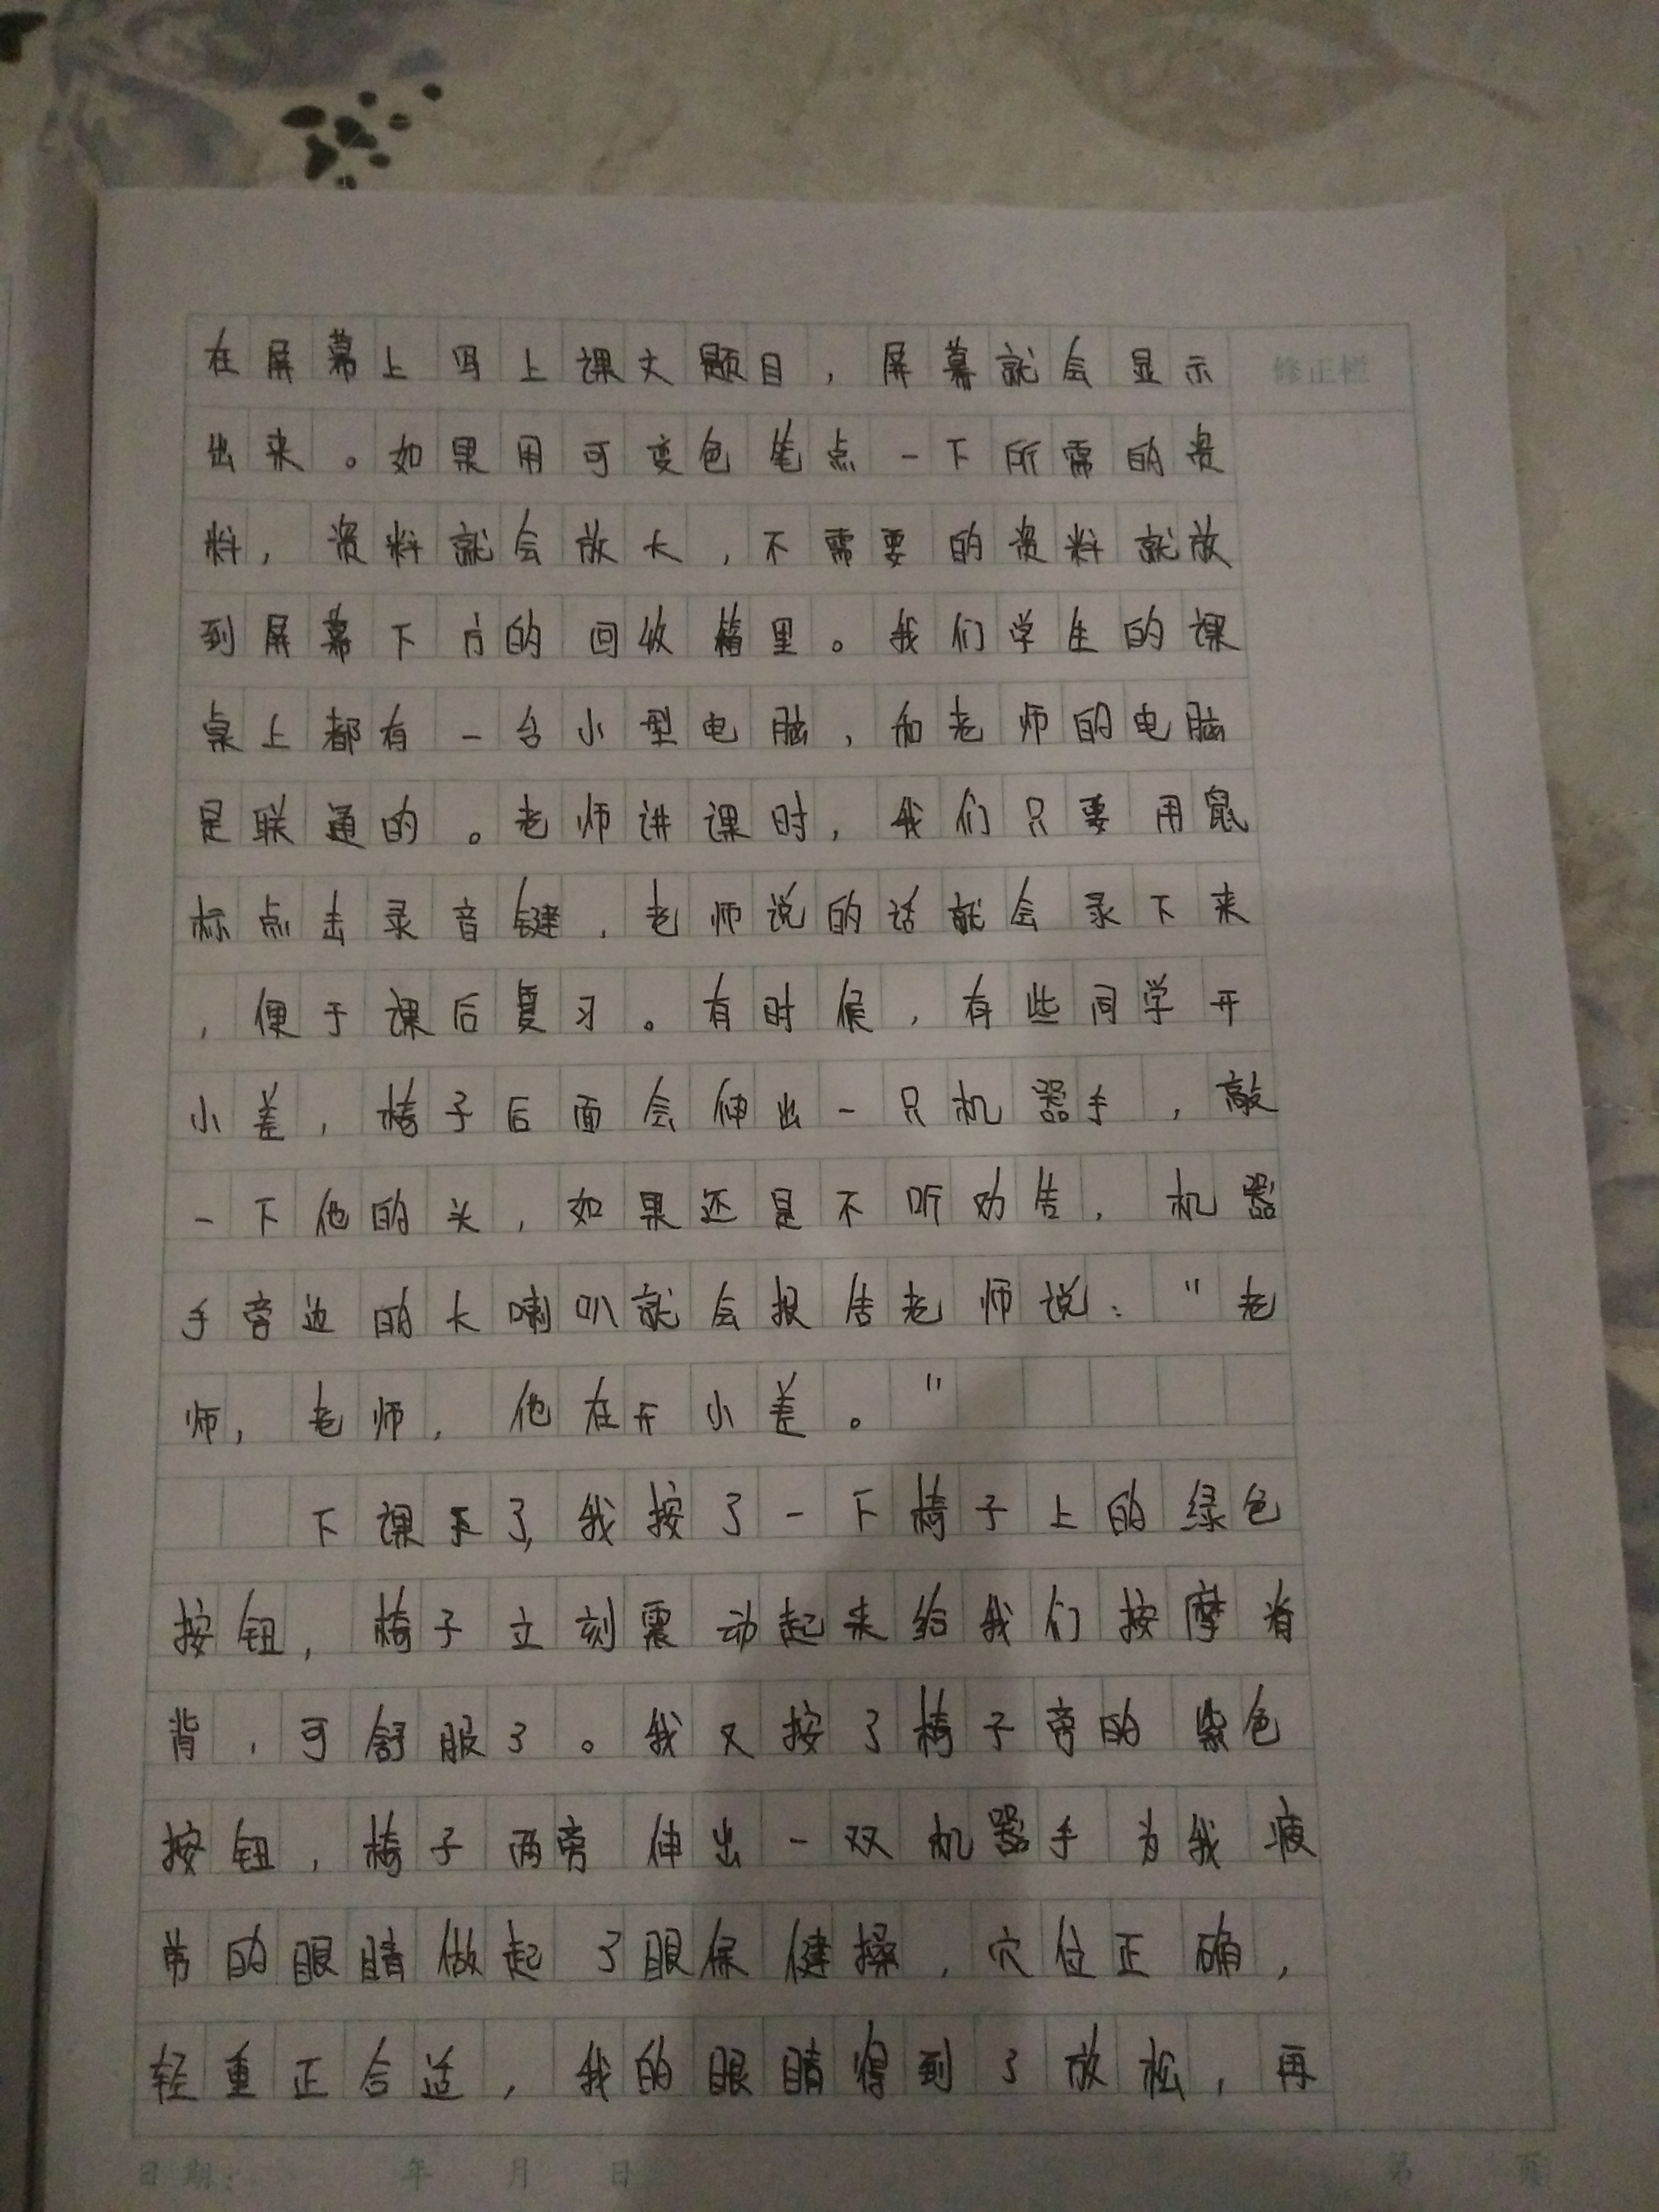 在屏幕上写上课文题目，屏幕就会显示
修正栏
出来。如果用可变色笔点一下所需的资
料，资料就会放大，不需要的资料就放
到屏幕下方的回收箱里。我们学生的课
桌上都有一台小型电脑，和老师的电脑
是联通的。老师讲课时，我们只要用鼠
标点击录音键，老师说的话就会录下来
，便于课后复习。有时候，有些同学开
小差，椅子后面会伸出一只机器手，敲
一下他的头，如果还是不听劝告，机器
手旁边的大喇叭就会报告老师说："老
师，老师，他在开小差。"
下课了，我按了一下椅子上的绿色
按钮，椅子立刻震动起来给我们按摩脊
背，可舒服了。我又按了椅子旁的紫色
按钮，椅子两旁伸出一双机器手为我疲
劳的眼睛做起了眼保健操，穴位正确，
轻重正合适，我的眼睛得到了放松，再
日期： 年 月 日
第 页